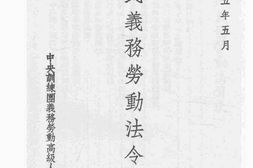 五年五月
義務勞動法令
中央訓練團義務勞動高級